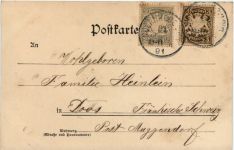 Postkarte
An
Wohlgeboren
Familie Heinlein
in Doos, Fränkische Schweiz
Post Muggendorf
Wohnung
(Straße und Hausnummer)